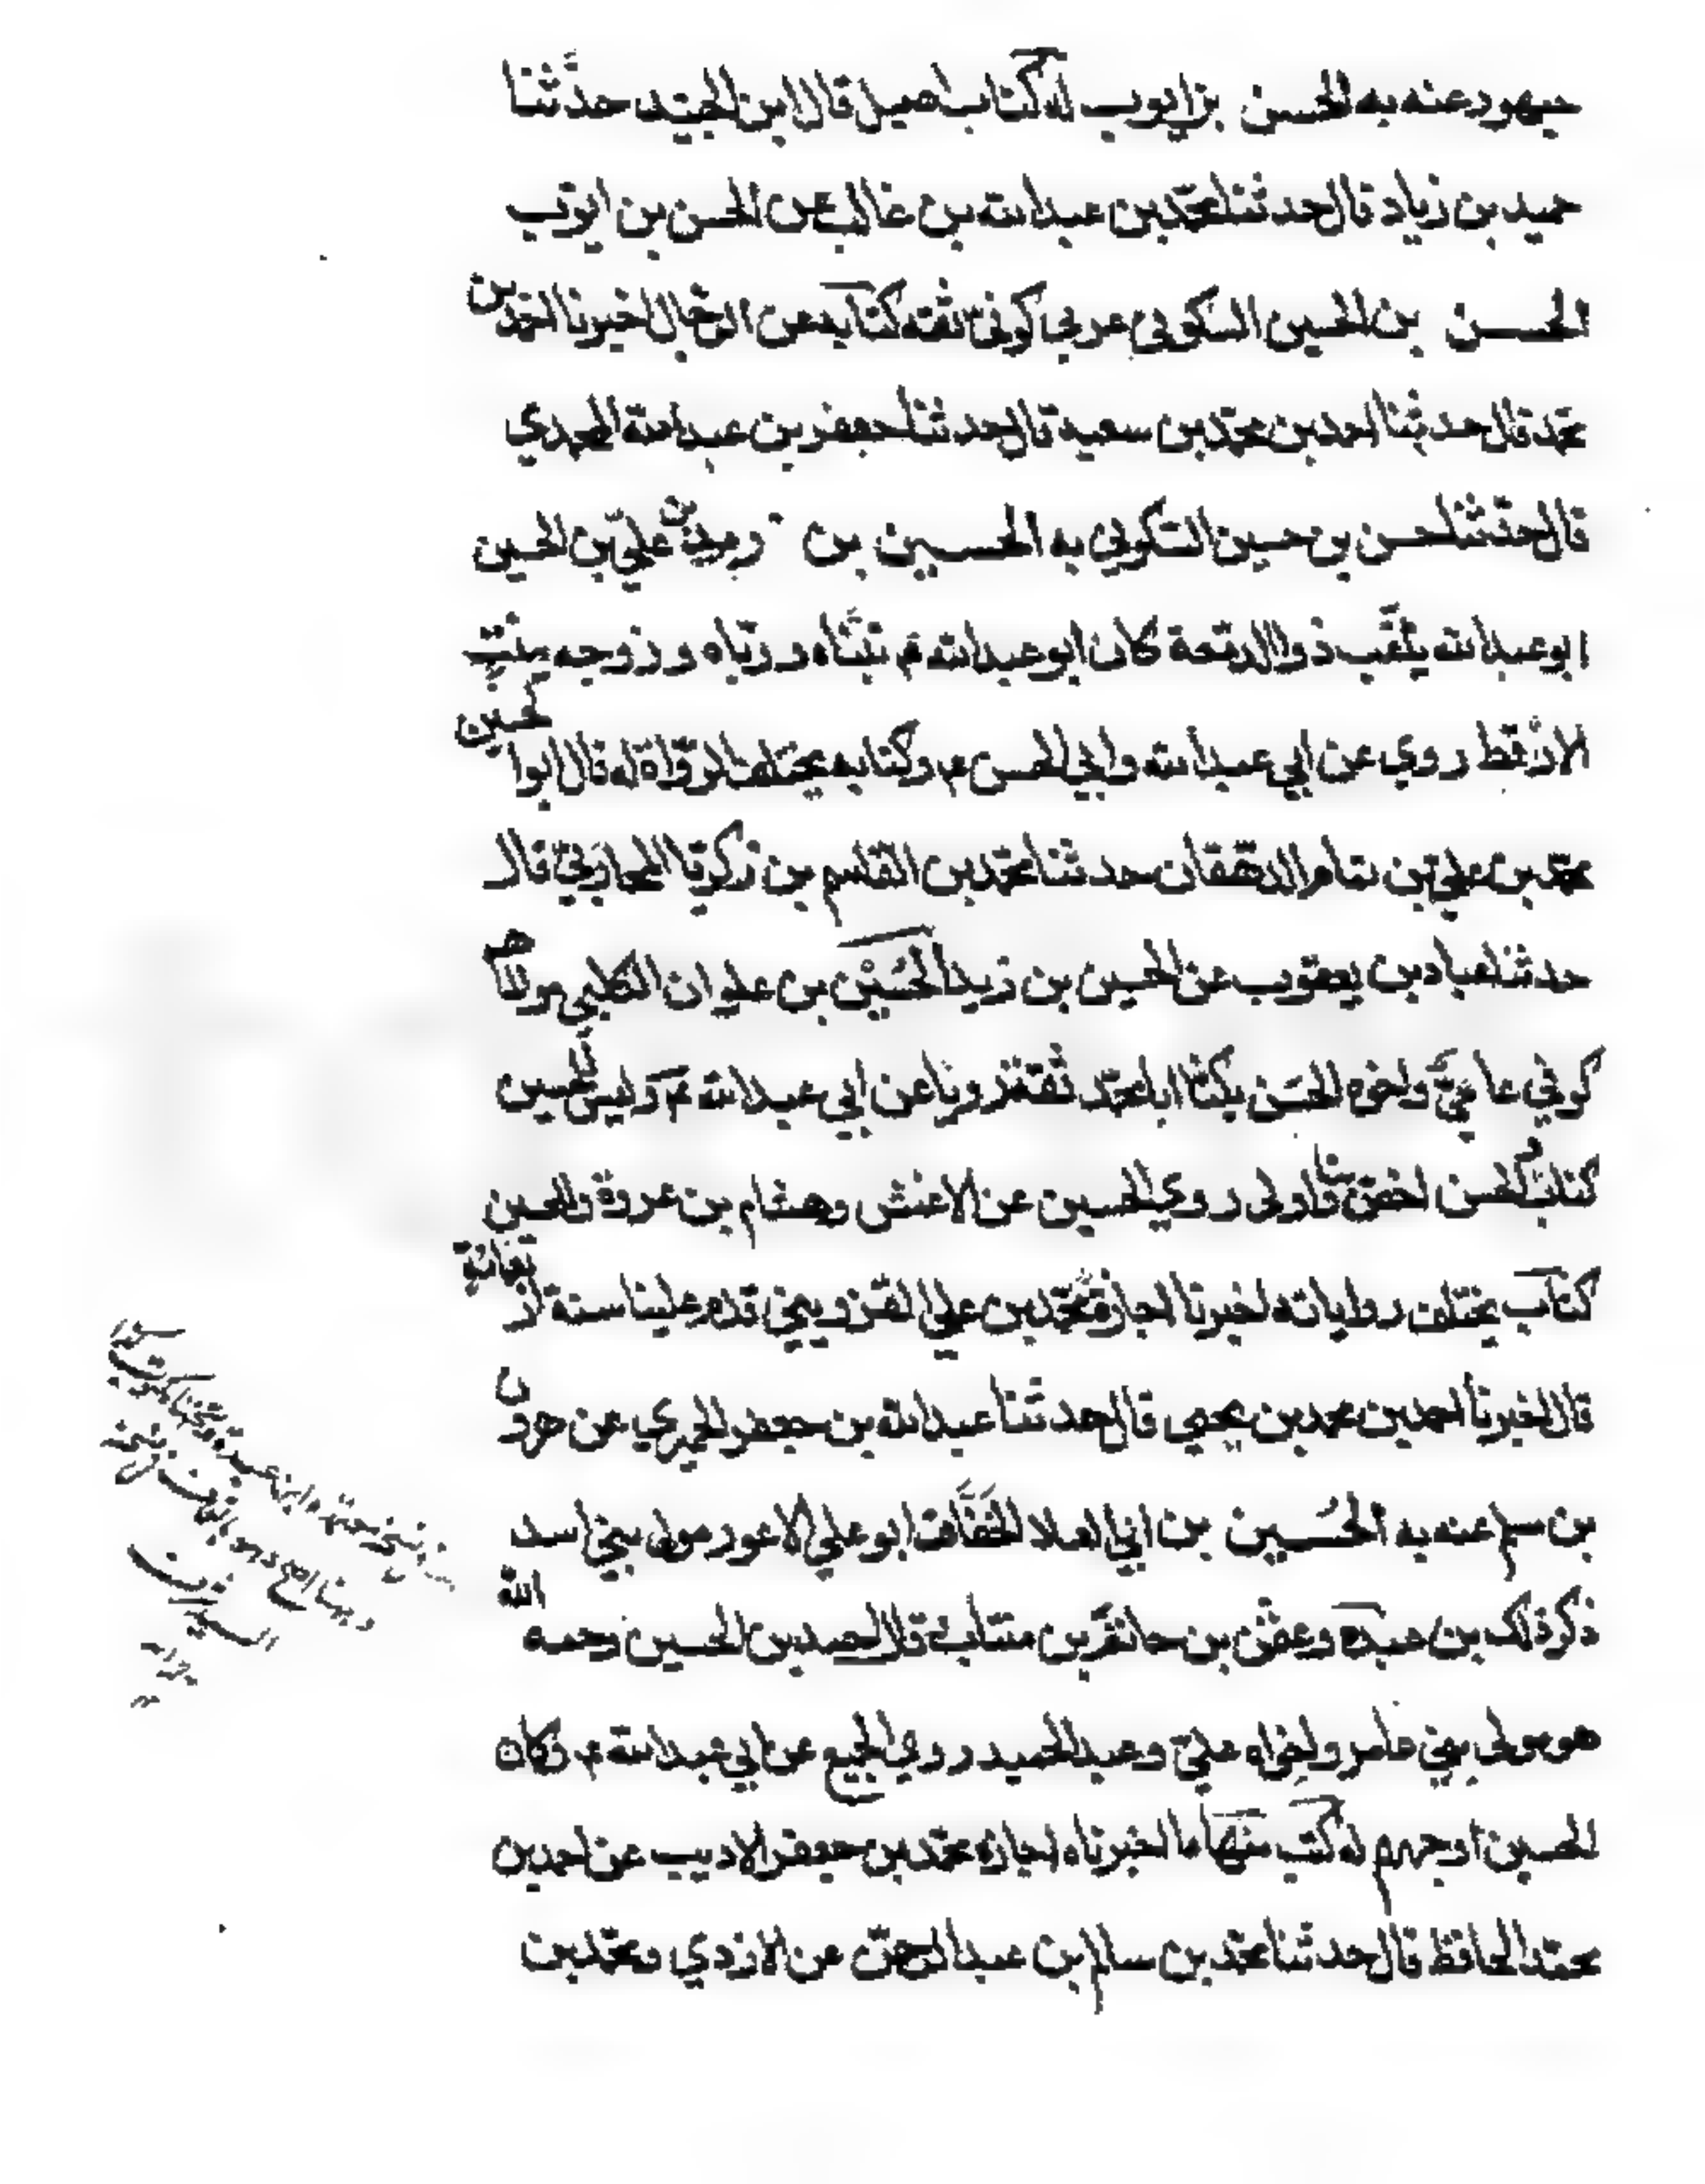 جمهور عنه به الحسن بن ايوب له كتاب اصيل قال ابن الجنيد حدثنا
حميد بن زياد قال حدثنا محمد بن عبدالله بن غالب عن الحسن بن ايوب
الحسن بن الحسين السكوني عربي كوفي ثقة كتابه عن الرجال اخبرنا احمد بن
محمد قال حدثنا احمد بن محمد بن سعيد قال حدثنا جعفر بن عبدالله المحمدي
قال حدثنا حسن بن حسين السكوني به الحسين بن زيد بن علي بن الحسين
ابو عبدالله يلقب ذوالدمعة كان ابو عبدالله ع تبناه و رباه و زوجه بنت
الارقط روي عن ابي عبدالله وابي الحسن ع وكتابه يختلف الرواة له قال ابوا لحسين
محمد بن علي بن تمام الدهقان حدثنا محمد بن القاسم بن زكريا المحاربي قال
حدثنا عباد بن يعقوب عن الحسين بن زيد الحسين بن علوان الكلبي مولاهم
كوفي عامي واخوه الحسن يكنا ابا محمد ثقة رويا عن ابي عبدالله ع وليس للحسين
كتاب والحسن اخص بنا واولى روي الحسين عن الاعمش وهشام بن عروة وللحسين
كتاب يختلف رواياته اخبرنا اجازة محمد بن علي القزويني قدم علينا سنة اربعمائة
قال اخبرنا احمد بن محمد بن يحيي قال حدثنا عبدالله بن جعفر الحميري عن هرون
بن مسلم عنه به الحسين بن ابي العلا الخفاف ابو علي الاعور مولى بني اسد
ذكر ذلك بن عبدة وعثمن بن حاتم بن منتاب قال احمد بن الحسين رحمه الله
هو مولى بني عامر واخواه علي وعبد الحميد روي الجميع عن ابي عبدالله ع وكان
الحسين اوجههم له كتب منها ما اخبرناه اجازة محمد بن جعفر الاديب عن احمد بن
محمد الحافظ قال حدثنا محمد بن سالم بن عبد الرحمن عن الازدي ومحمد بن